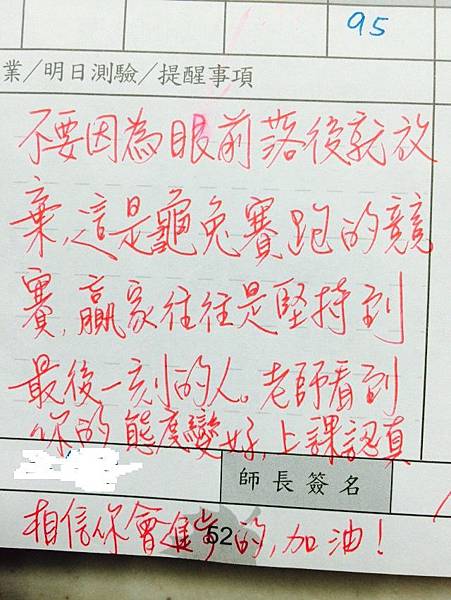 95
業／明日測驗／提醒事項
不要因為眼前落後就放
棄，這是龜兔賽跑的競
賽，贏家往往是堅持到
最後一刻的人。老師看到
你的態度變好，上課認真
師長簽名
相信你會進步的，加油！
52